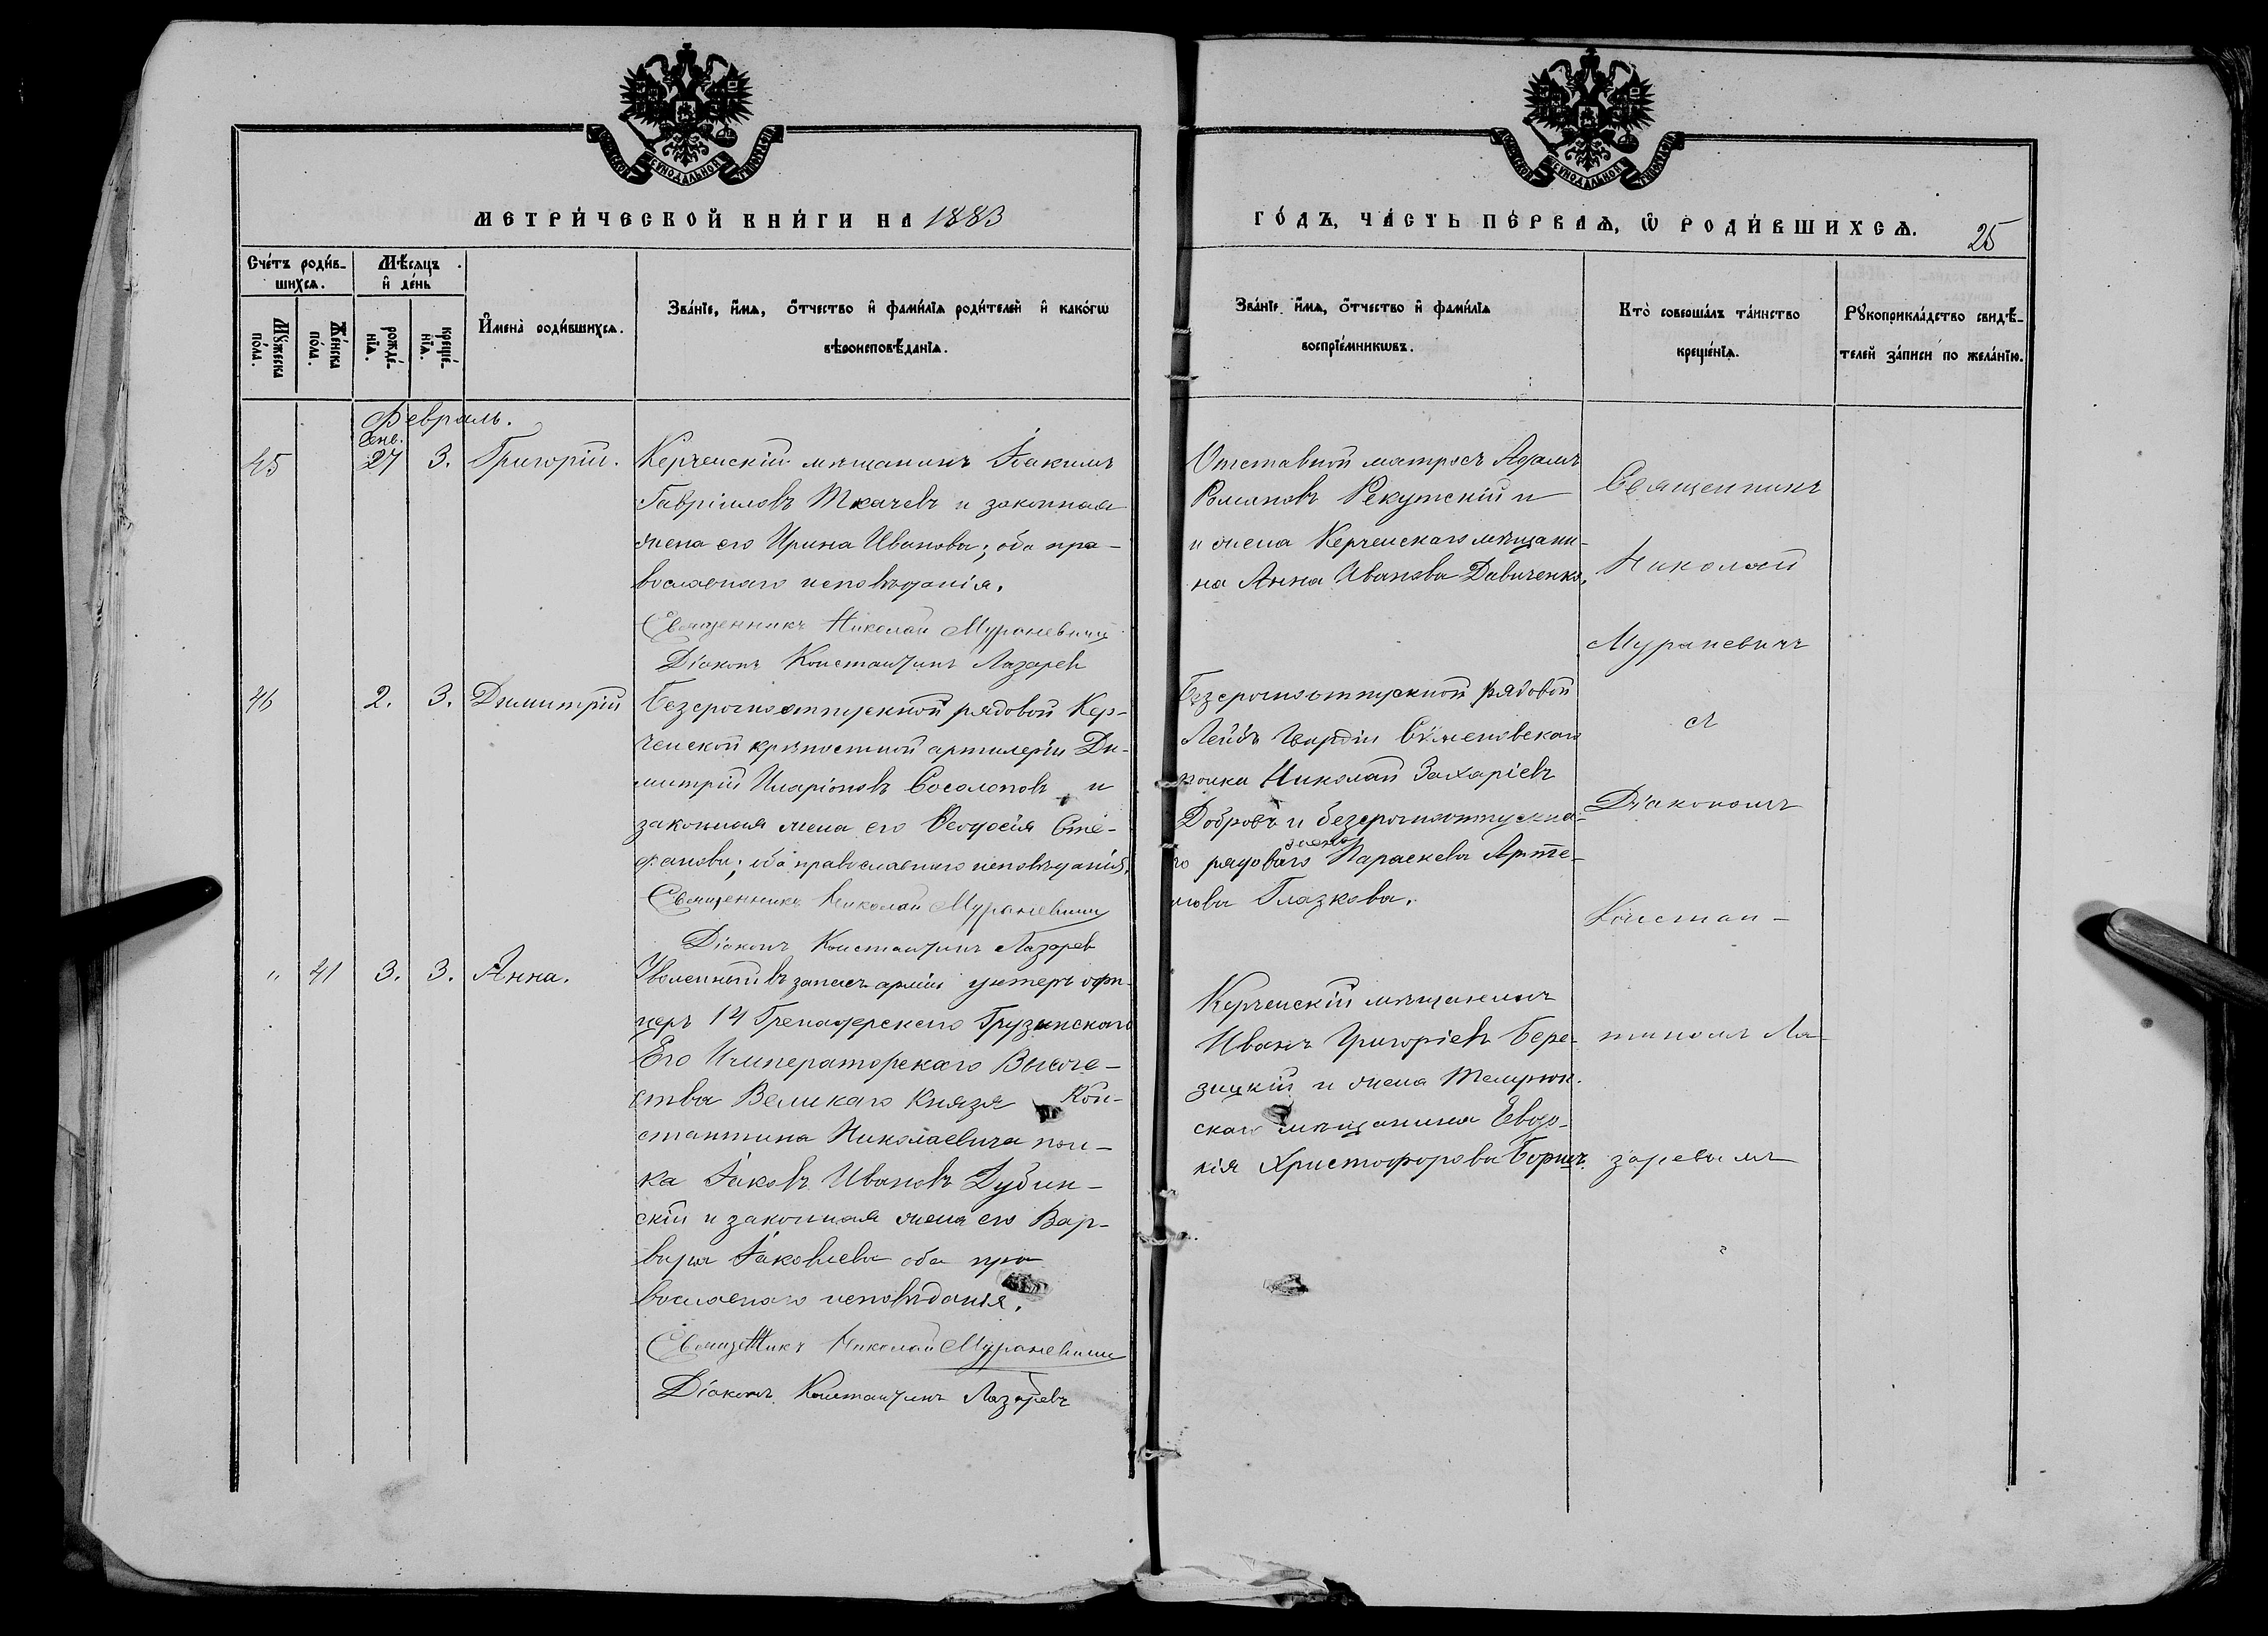 МЕТРИ́ЧЕСКОЙ КНИ́ГИ НА 1883
ГО́ДЪ, ЧА́СТЬ ПЕ́РВАѦ, Ѡ РОДИ́ВШИХСѦ.
25
Сче́тъ роди́в-
шихсѧ.
Мѣ́сѧцъ
и де́нь
Мꙋ́жеска
по́ла.
Же́нска
по́ла.
рожде́-
нїѧ.
креще́-
нїѧ.
Имена̀ роди́вшихсѧ.
Зва́нїе, и́мѧ, ѻ́тчество и фами́лїѧ роди́телей и како́гѡ
вѣроисповѣ́данїѧ.
Зва́нїе, и́мѧ, ѻ́тчество и фами́лїѧ
воспрїе́мникѡвъ.
Кто̀ соверша́лъ та́инство
креще́нїѧ.
Рꙋкоприкла́дство свидѣ́-
телей за́писи по жела́нїю.
Февраль.
Генв.
45 27 3. Григорій.
Керченскій мѣщанинъ Іоакимъ
Гавріиловъ Ткачевъ и законная
жена его Ирина Иванова; оба пра-
вославнаго исповѣданія.
Священникъ Николай Мураневичъ
Діаконъ Константинъ Лазарев
Отставной матросъ Адамъ
Романовъ Рекутскій и
и жена Керченскаго мѣщани-
на Анна Иванова Давиченко.
46 2. 3. Димитрій
Безсрочноотпускной рядовой Кер-
ченской крѣпостной артилеріи Ди-
митрій Иларіоновъ Сосолоповъ и
законная жена его Ѳеодосія Сте-
фанова; оба православнаго исповѣданія.
Священникъ Николай Мураневичъ
Діаконъ Константинъ Лазарев
Безсрочноотпускной рядовой
Лейбъ Гвардіи Семеновскаго
полка Николай Захаріевъ
Добровъ и безсрочноотпускна-
го рядоваго жена Параскева Арте-
мова Глазкова.
" 41 3. 3. Анна.
Уволенный въ запасъ арміи унтеръ офи-
церъ 14 Гренадерскаго Грузинскаго
Его Императорскаго Высоче-
ства Великаго Князя Кон-
стантина Николаевича пол-
ка Іаковъ Ивановъ Дубин-
скій и законная жена его Вар-
вара Іаковлева оба пра
вославнаго исповѣданія.
Священникъ Николай Мураневичъ
Діаконъ Константинъ Лазаревъ
Керченскій мѣщанинъ
Иванъ Григоріевъ Бере-
зицкій и жена Темрюк-
скаго мѣщанина Евдо-
кія Христофорова Борщъ.
Священникъ
Николай
Мураневичъ
съ
Діакономъ
Констан-
тиномъ Ла-
заревымъ